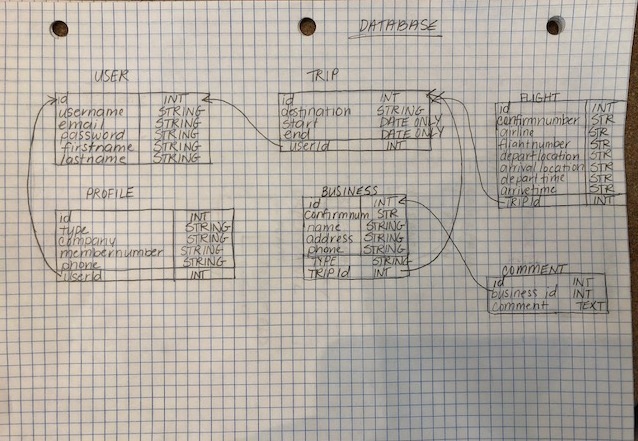 DATABASE
USER
id INT
username STRING
email STRING
password STRING
firstname STRING
lastname STRING
TRIP
id INT
destination STRING
start DATE ONLY
end DATE ONLY
userId INT
FLIGHT
id INT
confirmnumber STR
airline STR
flightnumber STR
departlocation STR
arrivallocation STR
departtime STR
arrivetime STR
TRIPId INT
PROFILE
id INT
type STRING
company STRING
membernumber STRING
phone STRING
userId INT
BUSINESS
id INT
confirmnum STR
name STRING
address STRING
phone STRING
TYPE STRING
TRIPId INT
COMMENT
id INT
business id INT
comment TEXT